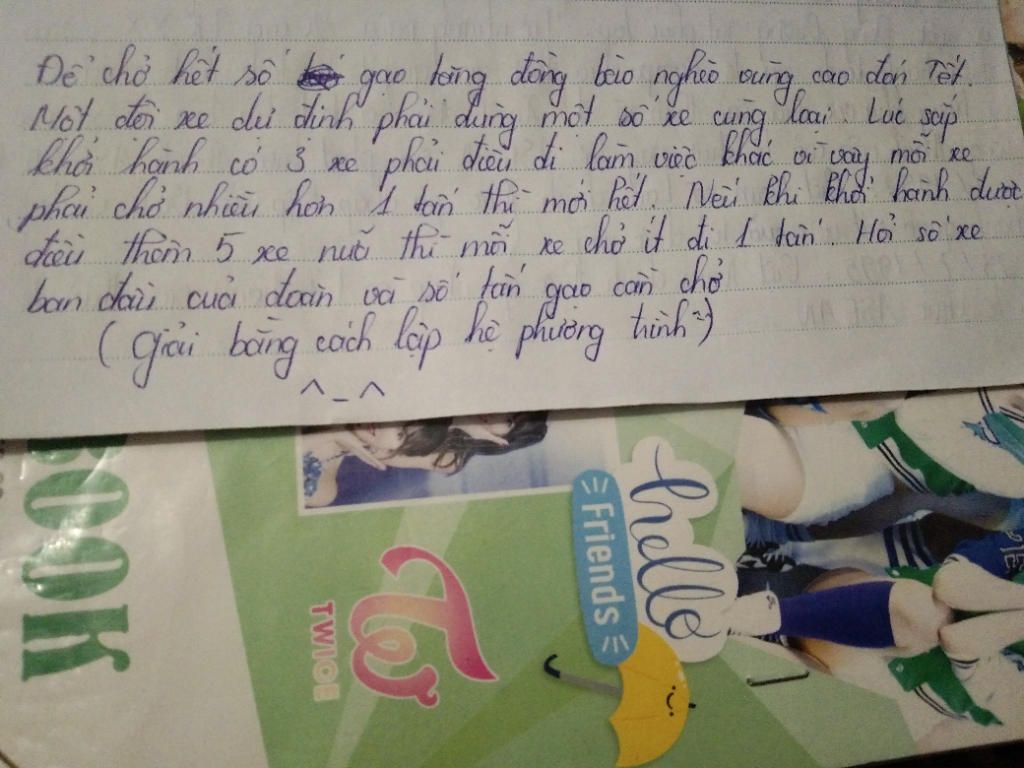 Để chở hết số gạo tặng đồng bào nghèo vùng cao đón Tết.
Một đội xe dự định phải dùng một số xe cùng loại. Lúc sắp
khởi hành có 3 xe phải điều đi làm việc khác vì vậy mỗi xe
phải chở nhiều hơn 1 tấn thì mới hết. Nếu khi khởi hành được
điều thêm 5 xe nữa thì mỗi xe chở ít đi 1 tấn. Hỏi số xe
ban đầu của đoàn và số tấn gạo cần chở
(Giải bằng cách lập hệ phương trình ~)
^_^
BOOK
TW
TWICE
hello
Friends